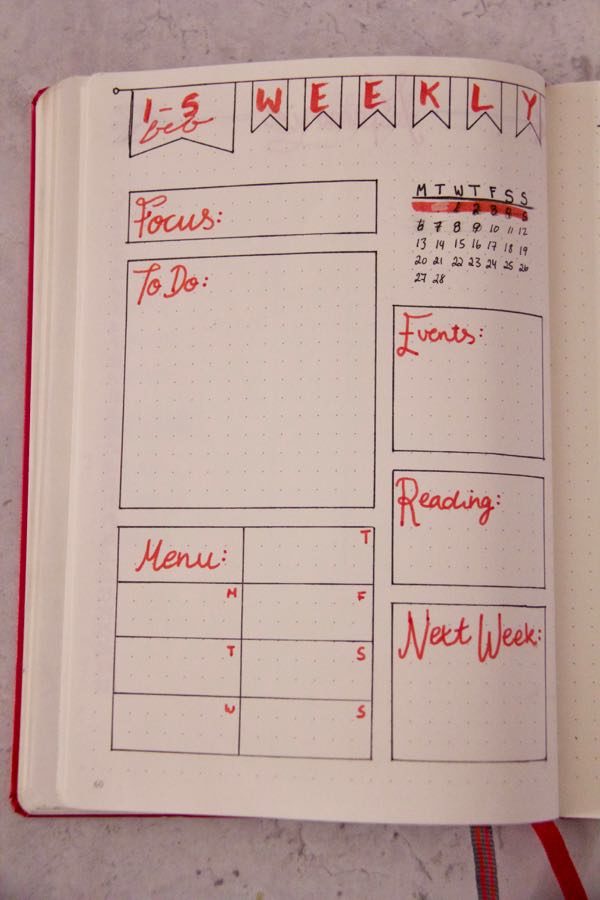 1-5 WEEKLY
feb
Focus:
To Do:
M T W T F S S
1 2 3 4 5
6 7 8 9 10 11 12
13 14 15 16 17 18 19
20 21 22 23 24 25 26
27 28
Events:
Reading:
Menu: T
M F
T S
W S
Next Week:
60